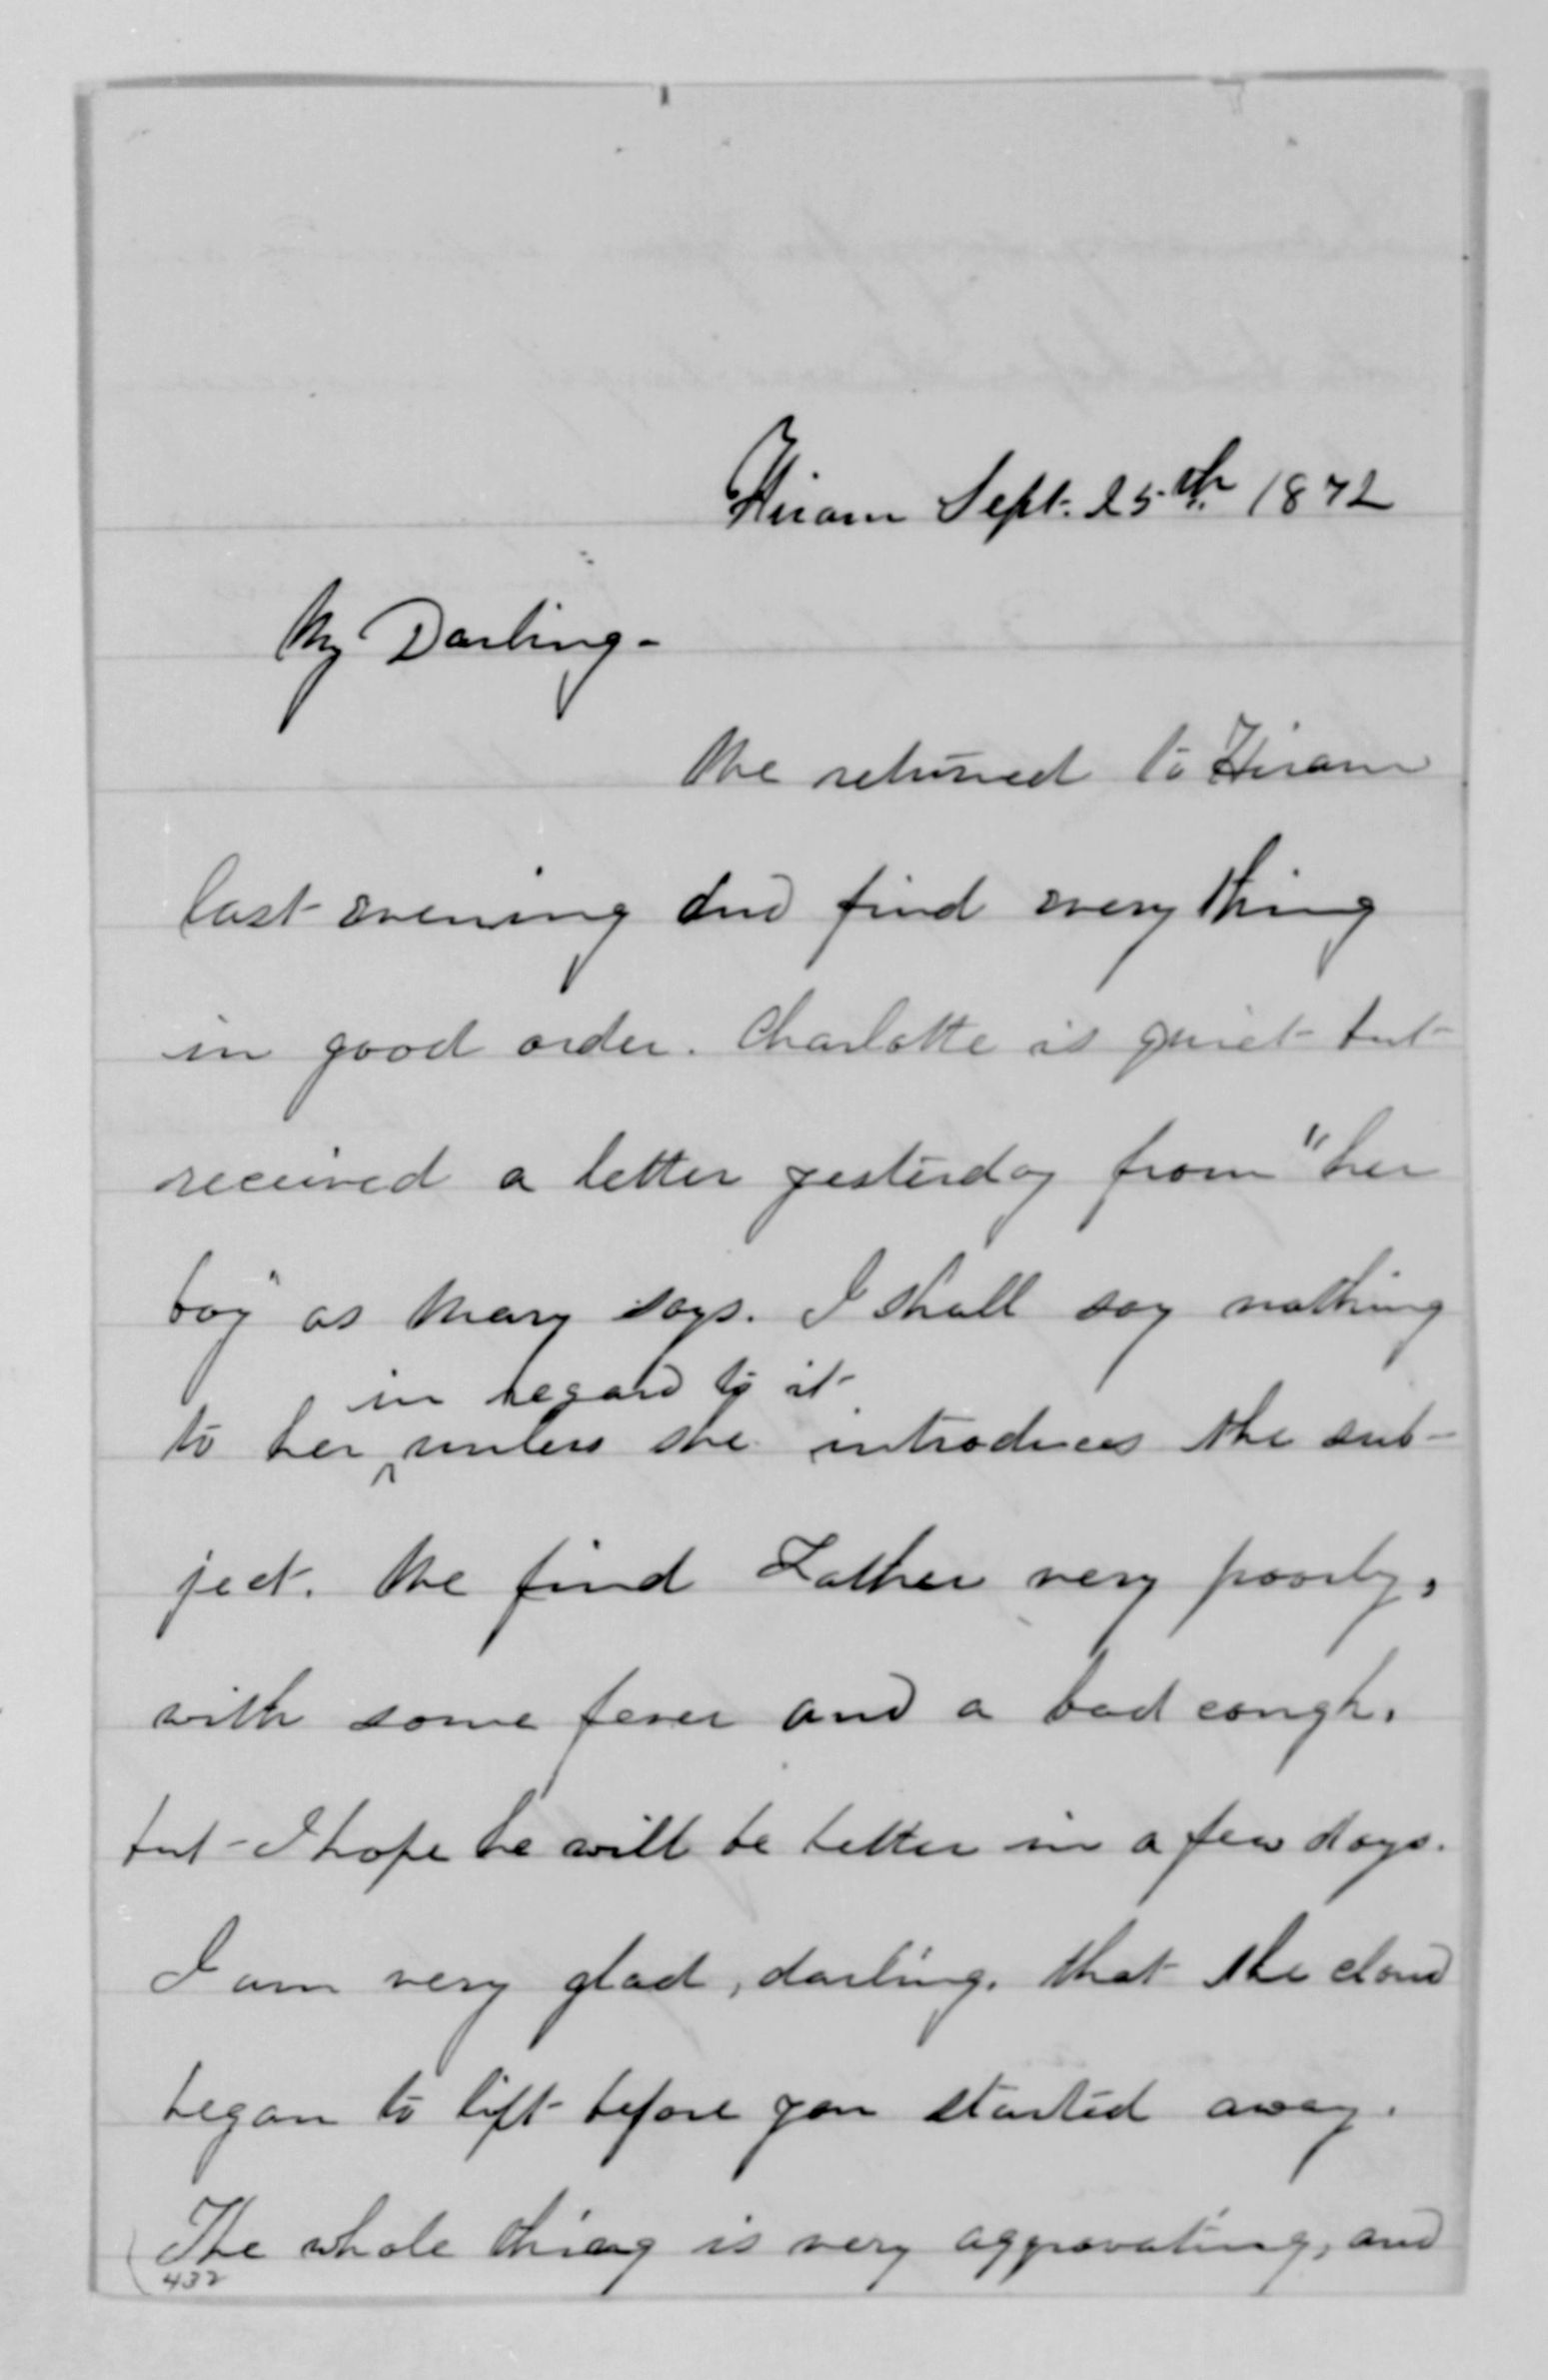 Hiram Sept. 25th 1872
My Darling-
We returned to Hiram
last evening and find every thing
in good order. Charlotte is quiet but
received a letter yesterday from "her
boy" as Mary says. I shall say nothing
in regard to it
to her ^ unless she introduces the sub-
ject. We find Father very poorly,
with some fever and a bad cough.
but I hope he will be better in a few days.
I am very glad, darling, that the cloud
began to lift before you started away.
The whole thing is very aggravating, and
432